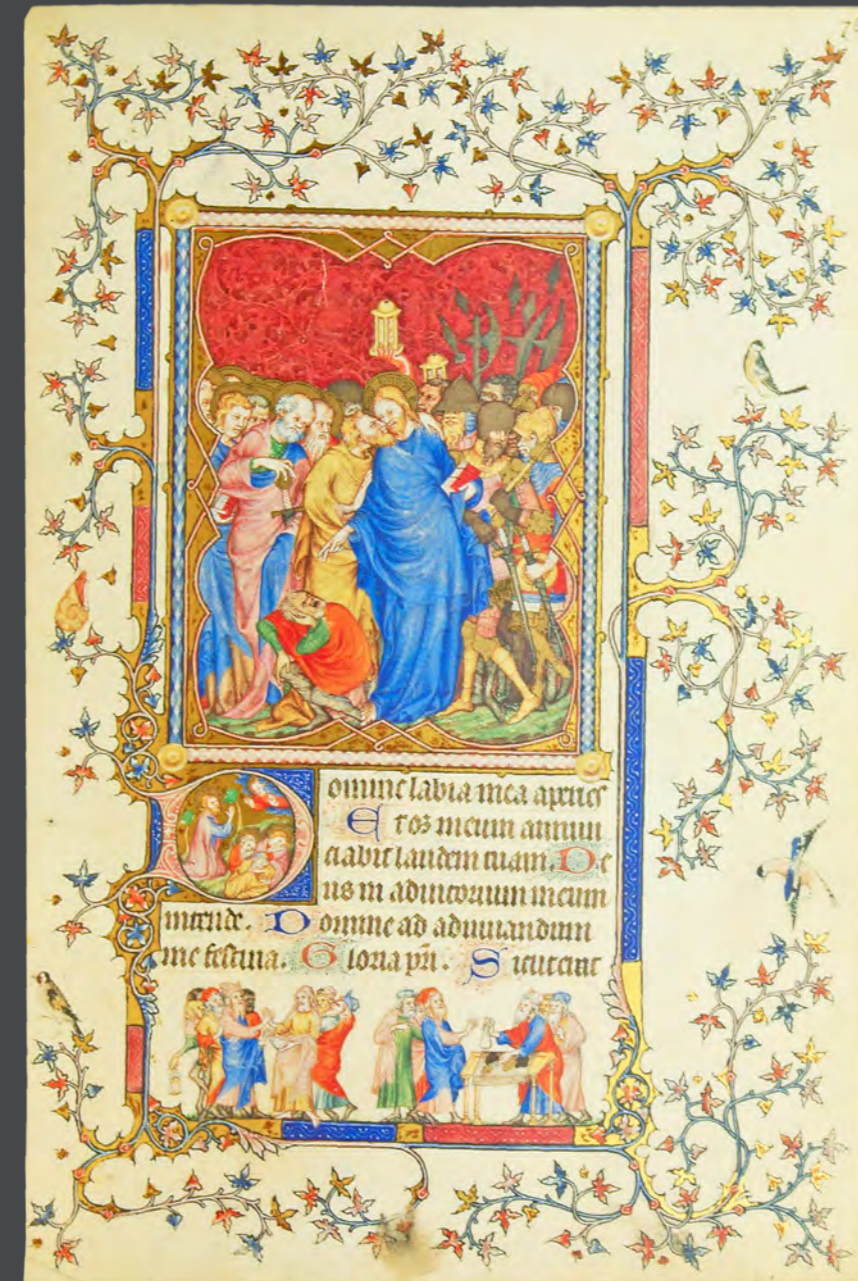 omine labia mea aperies
Et os meum annun
ciabit laudem tuam. De
us in adiutorium meum
intende. Domine ad adiuuandum
me festina. Gloria pri. Sicut erat